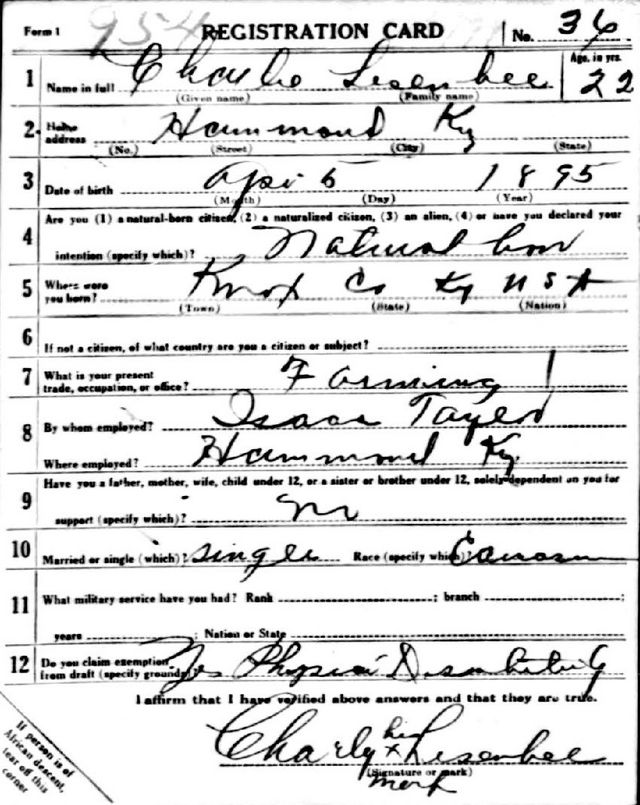 Form 1 954 REGISTRATION CARD No. 36
1 Name in full Charlie Lisenbee Age, in yrs. 22
(Given name) (Family name)
2 Home address Hammond Ky
(No.) (Street) (City) (State)
3 Date of birth Apri 5 1895
(Month) (Day) (Year)
4 Are you (1) a natural-born citizen, (2) a naturalized citizen, (3) an alien, (4) or have you declared your
intention (specify which)? Natural born
5 Where were you born? Knox Co Ky U S A
(Town) (State) (Nation)
6 If not a citizen, of what country are you a citizen or subject?
7 What is your present trade, occupation, or office? Farming
8 By whom employed? Isaac
Where employed? Hammond Ky
9 Have you a father, mother, wife, child under 12, or a sister or brother under 12, solely dependent on you for
support (specify which)? No
10 Married or single (which)? Single Race (specify which)?
11 What military service have you had? Rank ; branch ;
years ; Nation or State
12 Do you claim exemption from draft (specify grounds)? Yes
I affirm that I have verified above answers and that they are true.
Charly his x Lisenbee
(Signature or mark)
mark
If person is of
African descent,
tear off this
corner